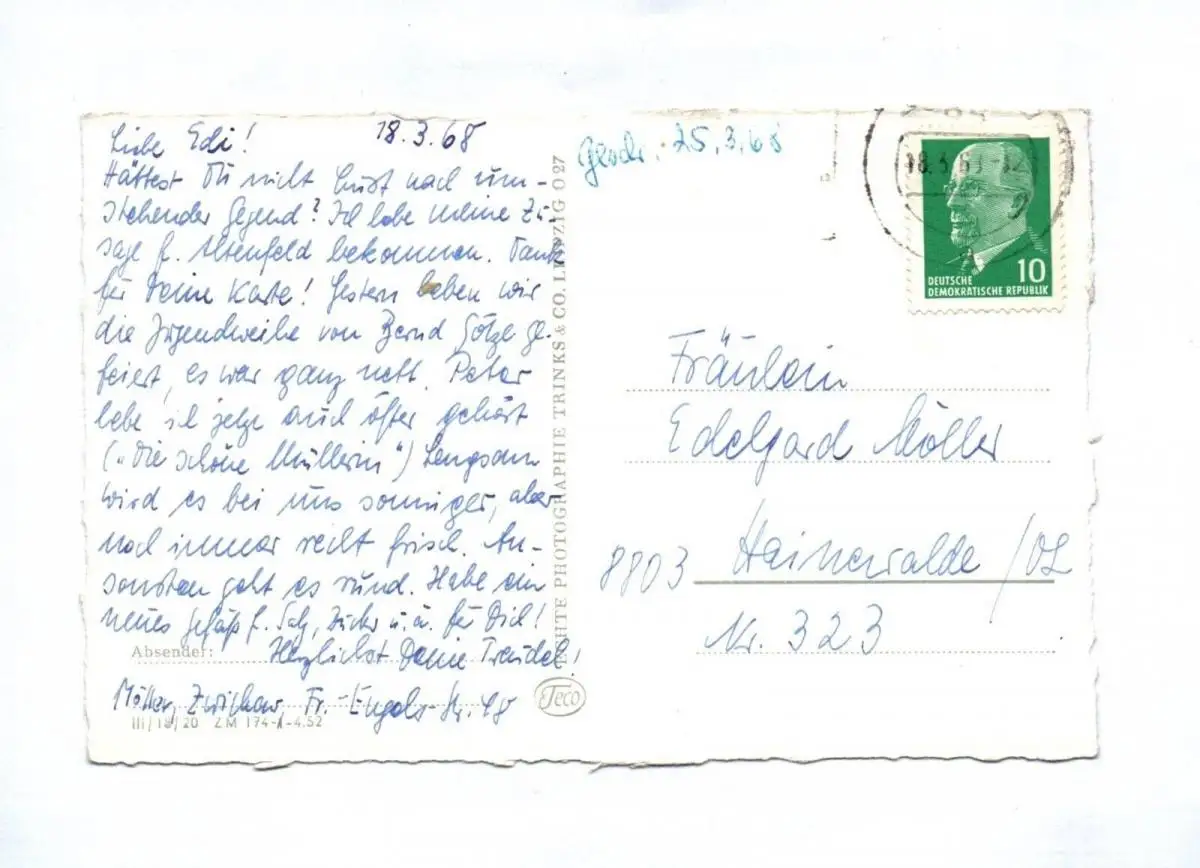 18.3.68
Liebe Edi!
Hättest Du nicht Lust nach um-
stehender Gegend? Ich habe meine Zu-
sage f. Altenfeld bekommen. Dank
für Deine Karte! Gestern haben wir
die Jugendweihe von Bernd Götze ge-
feiert, es war ganz nett. Peter
habe ich jetzt auch öfter gehört
("Die schöne Müllerin") Langsam
wird es bei uns sonniger, aber
noch immer recht frisch. An-
sonsten geht es rund. Habe ein
neues Gefäß f. Salz, Zucker u.ä. für Dich!
Herzlichst Deine Traudel!
Absender:
Möller, Zwickau, Fr.-Engels-Str. 48
III/18/20 ZM 174-1-4.52
ECHTE PHOTOGRAPHIE TRINKS & CO. LEIPZIG O 27
Teco
25.3.68
18.3.6
10
DEUTSCHE
DEMOKRATISCHE REPUBLIK
Fräulein
Edelgard Möller
8803 Hainewalde/OL
Nr. 323